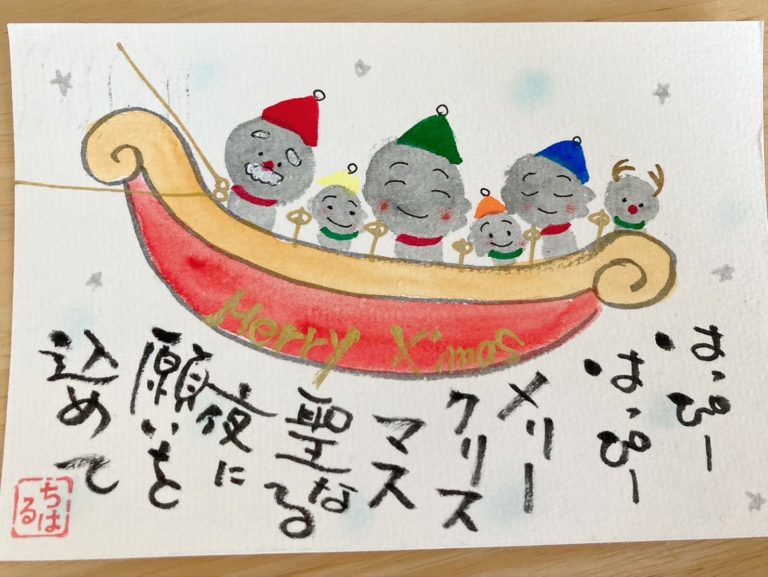 Merry X'mas
はっぴー
はっぴー
メリー
クリス
マス
聖なる
夜に
願いを
込めて
ちはる